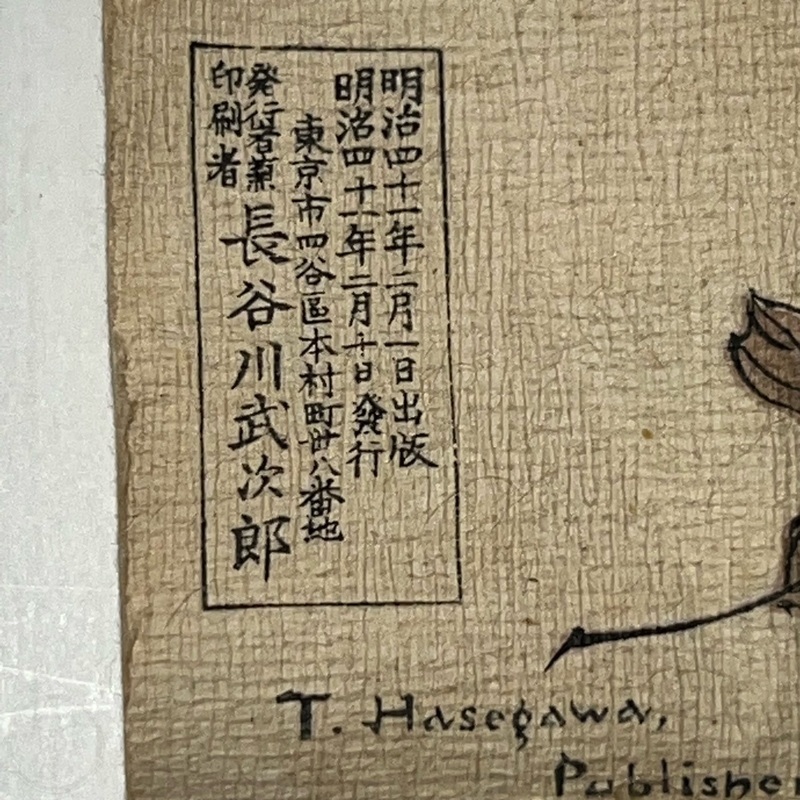 明治四十一年二月一日出版
明治四十一年二月十日發行
東京市四谷區本村町卅八番地
発行者兼
印刷者
長谷川武次郎
T. Hasegawa,
Publisher